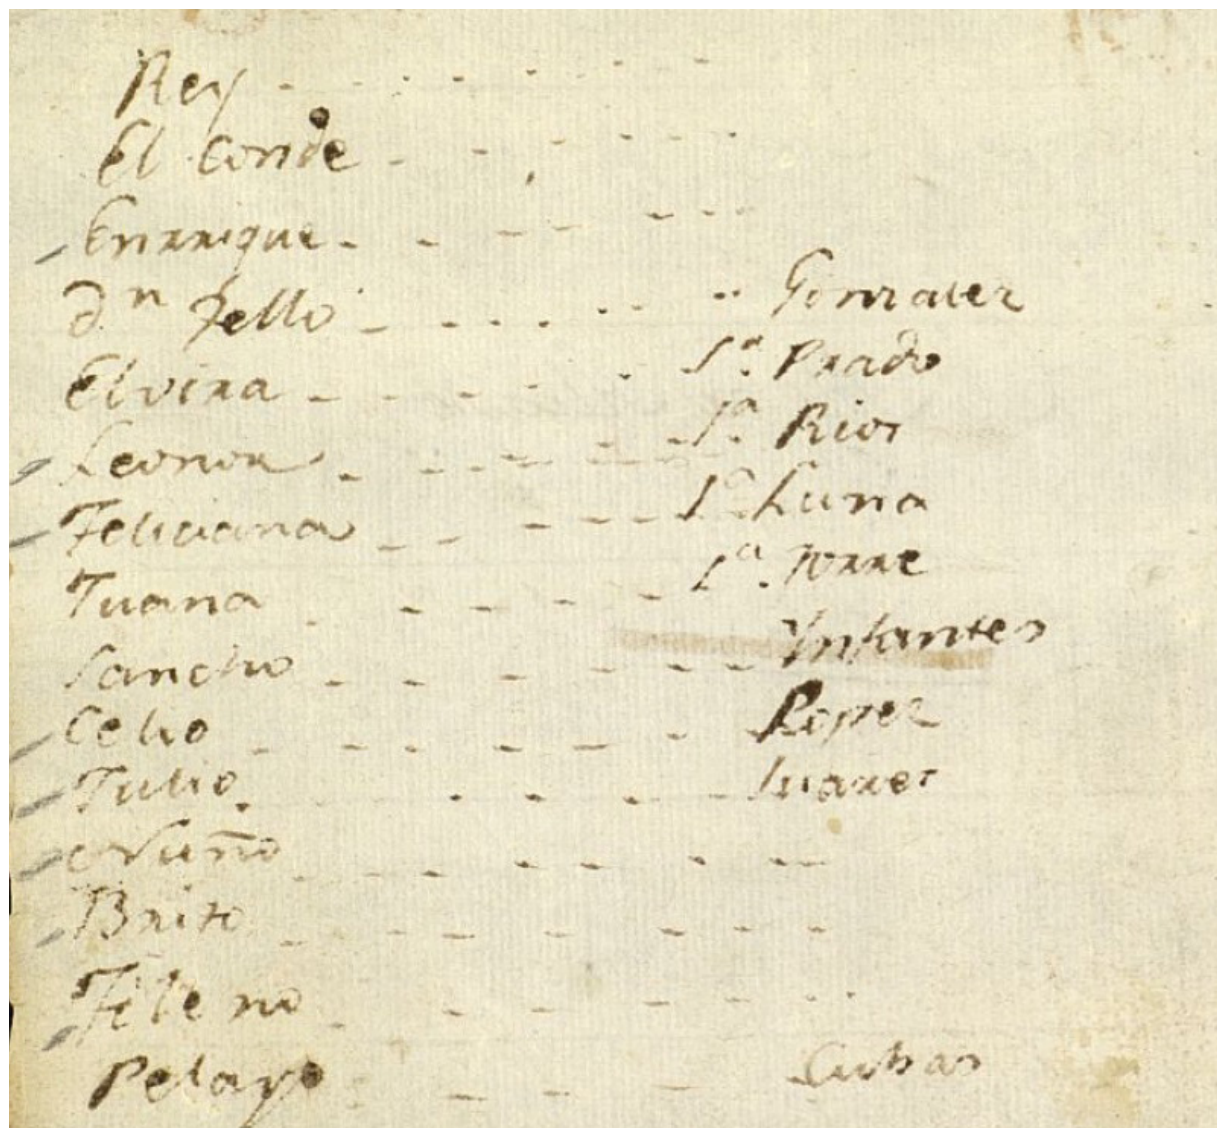 Rey
El Conde
Enrrique
Dn Tello Gonzalez
Elvira Sa. Prado
Leonor Sa. Rios
Feliciana Sa. Luna
Juana Sa. Torre
Sancho Ynfantes
Celio Lopez
Julio Suarez
Nuño
Brito
Fileno
Pelayo Cubas